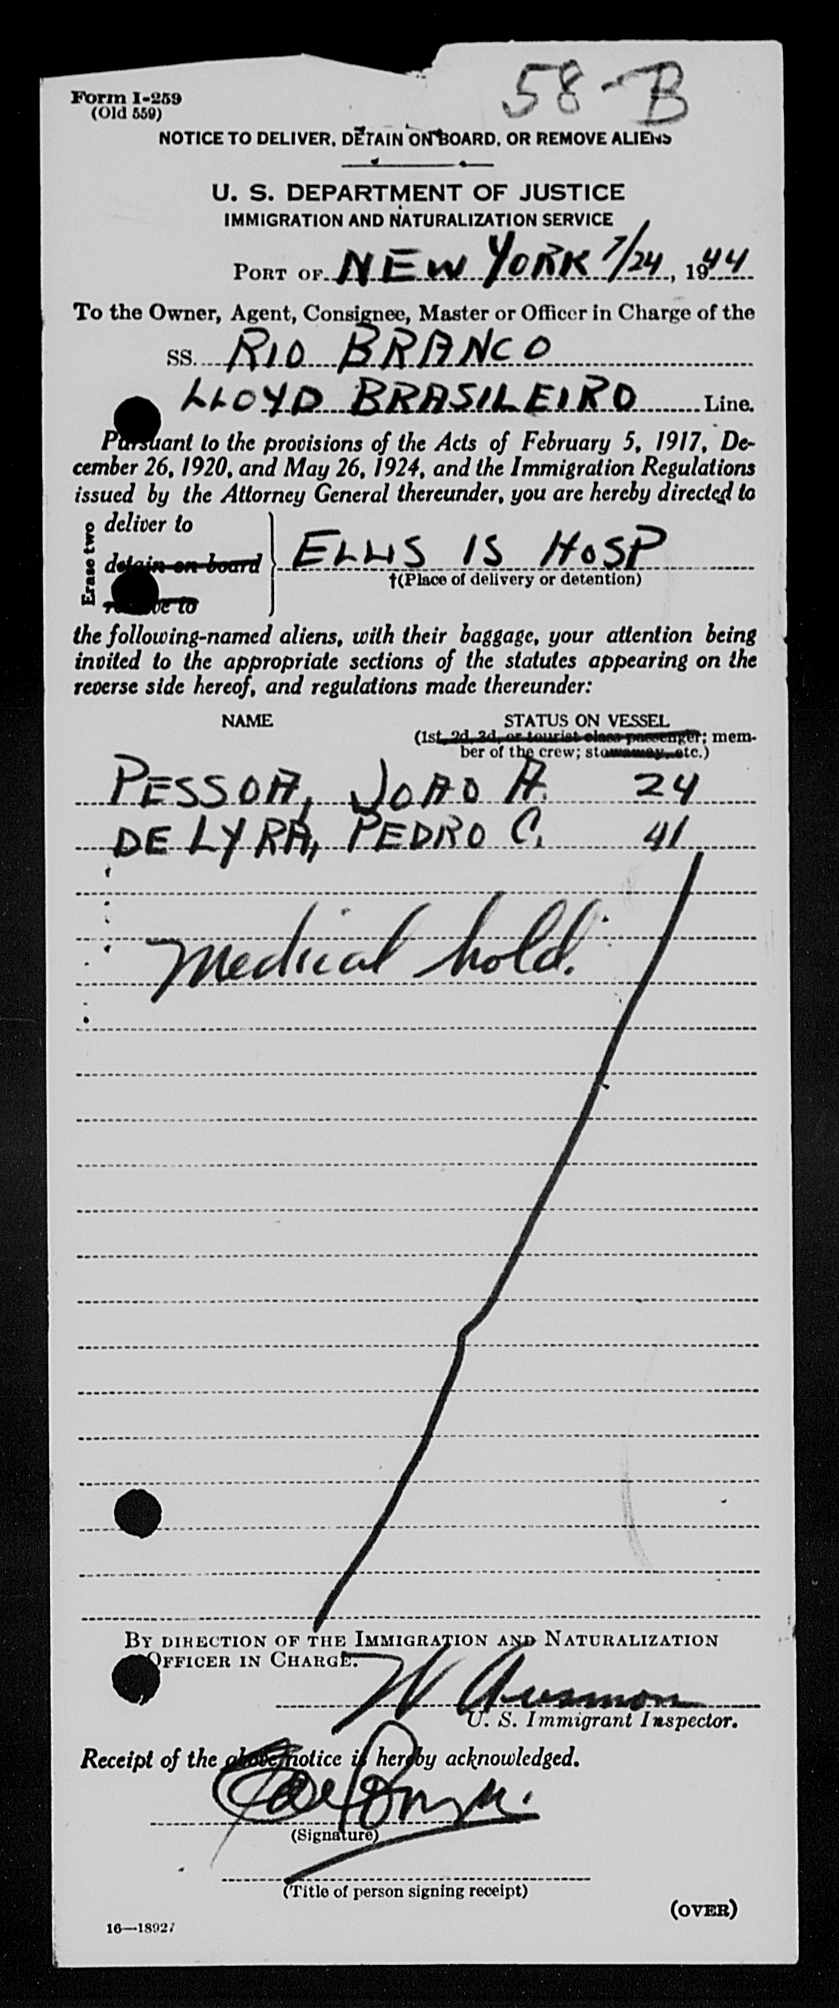 58-B
Form I-259
(Old 559)
NOTICE TO DELIVER, DETAIN ON BOARD, OR REMOVE ALIENS
U. S. DEPARTMENT OF JUSTICE
IMMIGRATION AND NATURALIZATION SERVICE
PORT OF NEW YORK 7/24, 1944
To the Owner, Agent, Consignee, Master or Officer in Charge of the
SS. RIO BRANCO
LLOYD BRASILEIRO Line.
Pursuant to the provisions of the Acts of February 5, 1917, De-
cember 26, 1920, and May 26, 1924, and the Immigration Regulations
issued by the Attorney General thereunder, you are hereby directed to
Erase two
deliver to
detain on board ELLIS IS HOSP
†(Place of delivery or detention)
remove to
the following-named aliens, with their baggage, your attention being
invited to the appropriate sections of the statutes appearing on the
reverse side hereof, and regulations made thereunder:
NAME STATUS ON VESSEL
(1st, 2d, 3d, or tourist class passenger; mem-
ber of the crew; stowaway, etc.)
PESSOA, JOAO A. 24
DE LYRA, PEDRO C. 41
Medical hold.
BY DIRECTION OF THE IMMIGRATION AND NATURALIZATION
OFFICER IN CHARGE.
U. S. Immigrant Inspector.
Receipt of the above notice is hereby acknowledged.
(Signature)
(Title of person signing receipt)
(OVER)
16—18927